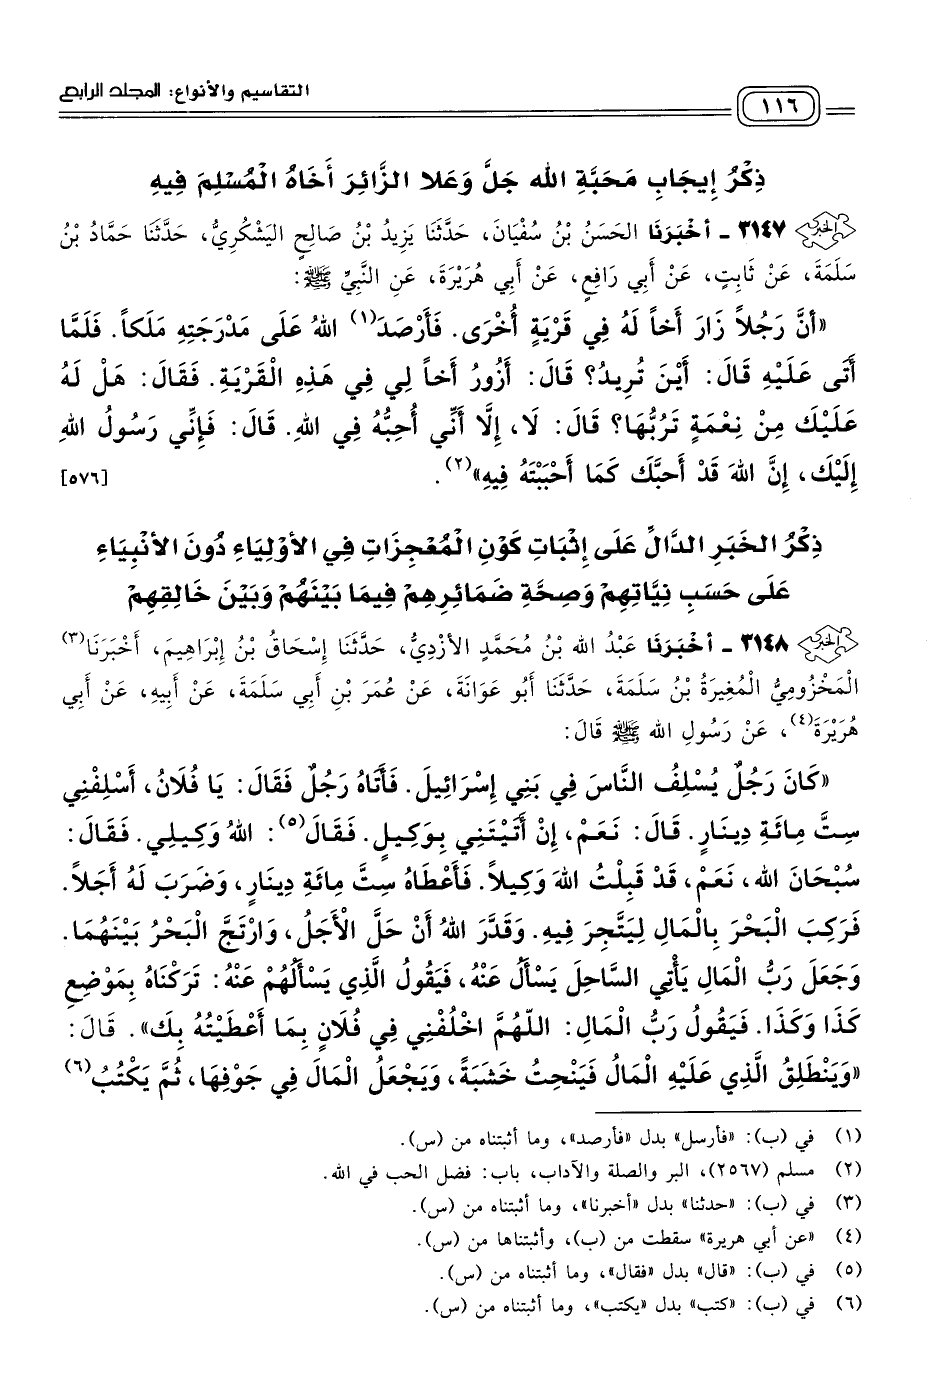 التقاسيم والأنواع: المجلد الرابع
١١٦
ذِكْرُ إِيجَابِ مَحَبَّةِ الله جَلَّ وَعَلا الزَّائِرَ أَخَاهُ الْمُسْلِمَ فِيهِ
٣١٤٧ - أَخْبَرَنَا الحَسَنُ بْنُ سُفْيَانَ، حَدَّثَنَا يَزِيدُ بْنُ صَالِحٍ اليَشْكُرِيُّ، حَدَّثَنَا حَمَّادُ بْنُ
سَلَمَةَ، عَنْ ثَابِتٍ، عَنْ أَبِي رَافِعٍ، عَنْ أَبِي هُرَيْرَةَ، عَنِ النَّبِيِّ ﷺ:
«أَنَّ رَجُلاً زَارَ أَخاً لَهُ فِي قَرْيَةٍ أُخْرَى. فَأَرْصَدَ(١) اللهُ عَلَى مَدْرَجَتِهِ مَلَكاً. فَلَمَّا
أَتَى عَلَيْهِ قَالَ: أَيْنَ تُرِيدُ؟ قَالَ: أَزُورُ أَخاً لِي فِي هَذِهِ الْقَرْيَةِ. فَقَالَ: هَلْ لَهُ
عَلَيْكَ مِنْ نِعْمَةٍ تَرُبُّهَا؟ قَالَ: لَا، إِلَّا أَنِّي أُحِبُّهُ فِي اللهِ. قَالَ: فَإِنِّي رَسُولُ اللهِ
إِلَيْكَ، إِنَّ اللهَ قَدْ أَحَبَّكَ كَمَا أَحْبَبْتَهُ فِيهِ»(٢). [٥٧٦]
ذِكْرُ الخَبَرِ الدَّالِّ عَلَى إِثْبَاتِ كَوْنِ الْمُعْجِزَاتِ فِي الأَوْلِيَاءِ دُونَ الأَنْبِيَاءِ
عَلَى حَسَبِ نِيَّاتِهِمْ وَصِحَّةِ ضَمَائِرِهِمْ فِيمَا بَيْنَهُمْ وَبَيْنَ خَالِقِهِمْ
٣١٤٨ - أَخْبَرَنَا عَبْدُ الله بْنُ مُحَمَّدٍ الأَزْدِيُّ، حَدَّثَنَا إِسْحَاقُ بْنُ إِبْرَاهِيمَ، أَخْبَرَنَا(٣)
الْمَخْزُومِيُّ الْمُغِيرَةُ بْنُ سَلَمَةَ، حَدَّثَنَا أَبُو عَوَانَةَ، عَنْ عُمَرَ بْنِ أَبِي سَلَمَةَ، عَنْ أَبِيهِ، عَنْ أَبِي
هُرَيْرَةَ(٤)، عَنْ رَسُولِ الله ﷺ قَالَ:
«كَانَ رَجُلٌ يُسْلِفُ النَّاسَ فِي بَنِي إِسْرَائِيلَ. فَأَتَاهُ رَجُلٌ فَقَالَ: يَا فُلَانُ، أَسْلِفْنِي
سِتَّ مِائَةِ دِينَارٍ. قَالَ: نَعَمْ، إِنْ أَتَيْتَنِي بِوَكِيلٍ. فَقَالَ(٥): اللهُ وَكِيلِي. فَقَالَ:
سُبْحَانَ الله، نَعَمْ، قَدْ قَبِلْتُ اللهَ وَكِيلاً. فَأَعْطَاهُ سِتَّ مِائَةِ دِينَارٍ، وَضَرَبَ لَهُ أَجَلاً.
فَرَكِبَ الْبَحْرَ بِالْمَالِ لِيَتَّجِرَ فِيهِ. وَقَدَّرَ اللهُ أَنْ حَلَّ الأَجَلُ، وَارْتَجَّ الْبَحْرُ بَيْنَهُمَا.
وَجَعَلَ رَبُّ الْمَالِ يَأْتِي السَّاحِلَ يَسْأَلُ عَنْهُ، فَيَقُولُ الَّذِي يَسْأَلُهُمْ عَنْهُ: تَرَكْنَاهُ بِمَوْضِعِ
كَذَا وَكَذَا. فَيَقُولُ رَبُّ الْمَالِ: اللّهُمَّ اخْلُفْنِي فِي فُلَانٍ بِمَا أَعْطَيْتُهُ بِكَ». قَالَ:
«وَيَنْطَلِقُ الَّذِي عَلَيْهِ الْمَالُ فَيَنْحِتُ خَشَبَةً، وَيَجْعَلُ الْمَالَ فِي جَوْفِهَا، ثُمَّ يَكْتُبُ(٦)
(١) في (ب): «فأرسل» بدل «فأرصد»، وما أثبتناه من (س).
(٢) مسلم (٢٥٦٧)، البر والصلة والآداب، باب: فضل الحب في الله.
(٣) في (ب): «حدثنا» بدل «أخبرنا»، وما أثبتناه من (س).
(٤) «عن أبي هريرة» سقطت من (ب)، وأثبتناها من (س).
(٥) في (ب): «قال» بدل «فقال»، وما أثبتناه من (س).
(٦) في (ب): «كتب» بدل «يكتب»، وما أثبتناه من (س).